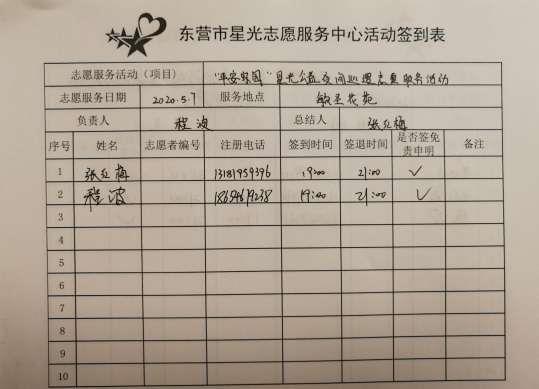 东营市星光志愿服务中心活动签到表
志愿服务活动（项目） "平安家园"星光公益夜间巡逻志愿服务活动
志愿服务日期 2020.5.7 服务地点 敏圣花苑
负责人 程波 总结人 张红梅
序号 姓名 志愿者编号 注册电话 签到时间 签退时间 是否签免责申明 备注
1 张红梅 13181959396 19:00 21:00 ✓
2 程波 19:00 21:00 ✓
3
4
5
6
7
8
9
10